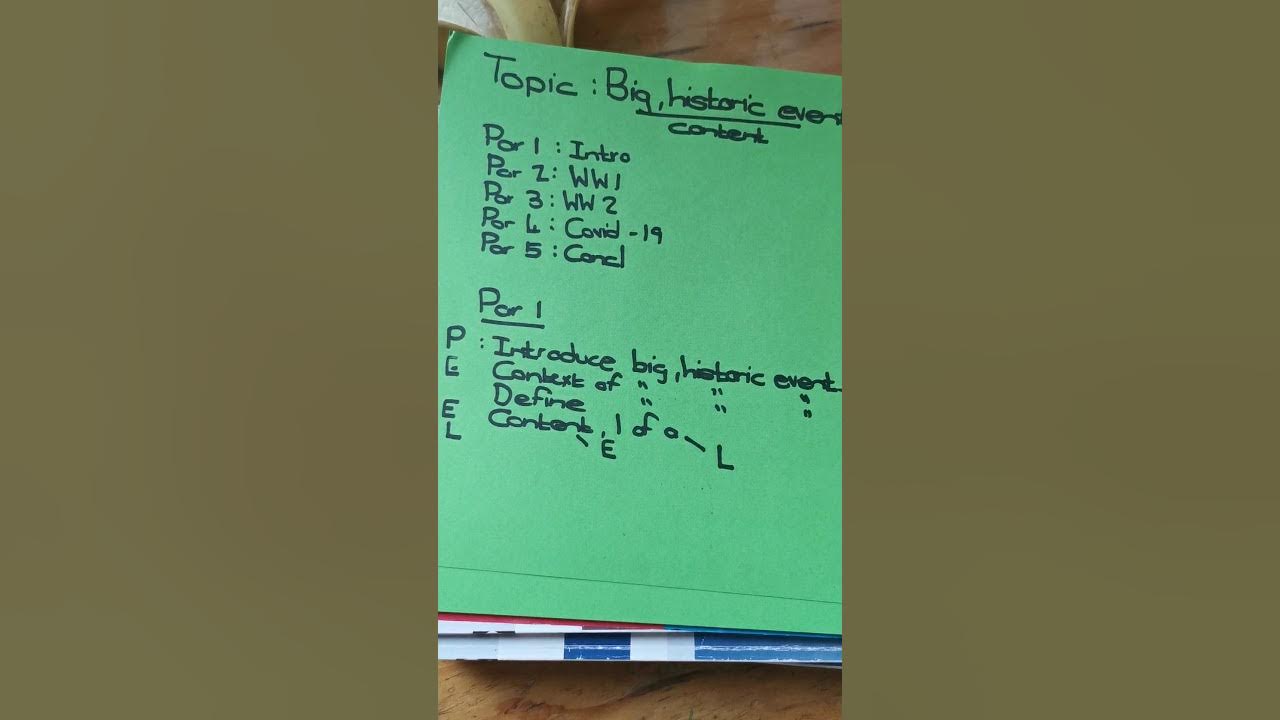 Topic : Big, historic event
content
Par 1 : Intro
Par 2 : WW1
Par 3 : WW2
Par 4 : Covid-19
Par 5 : Concl
Par 1
P : Introduce big, historic event
E Context of " " "
Define " " "
E Content, 1 of a
L
E
L